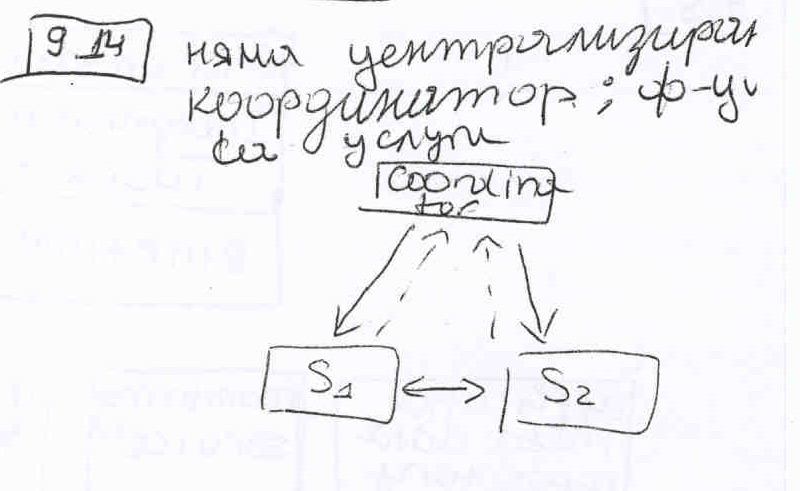 9.14
няма централизиран
координатор; ф-ци
са услуги
Coordina
tor
S1
S2